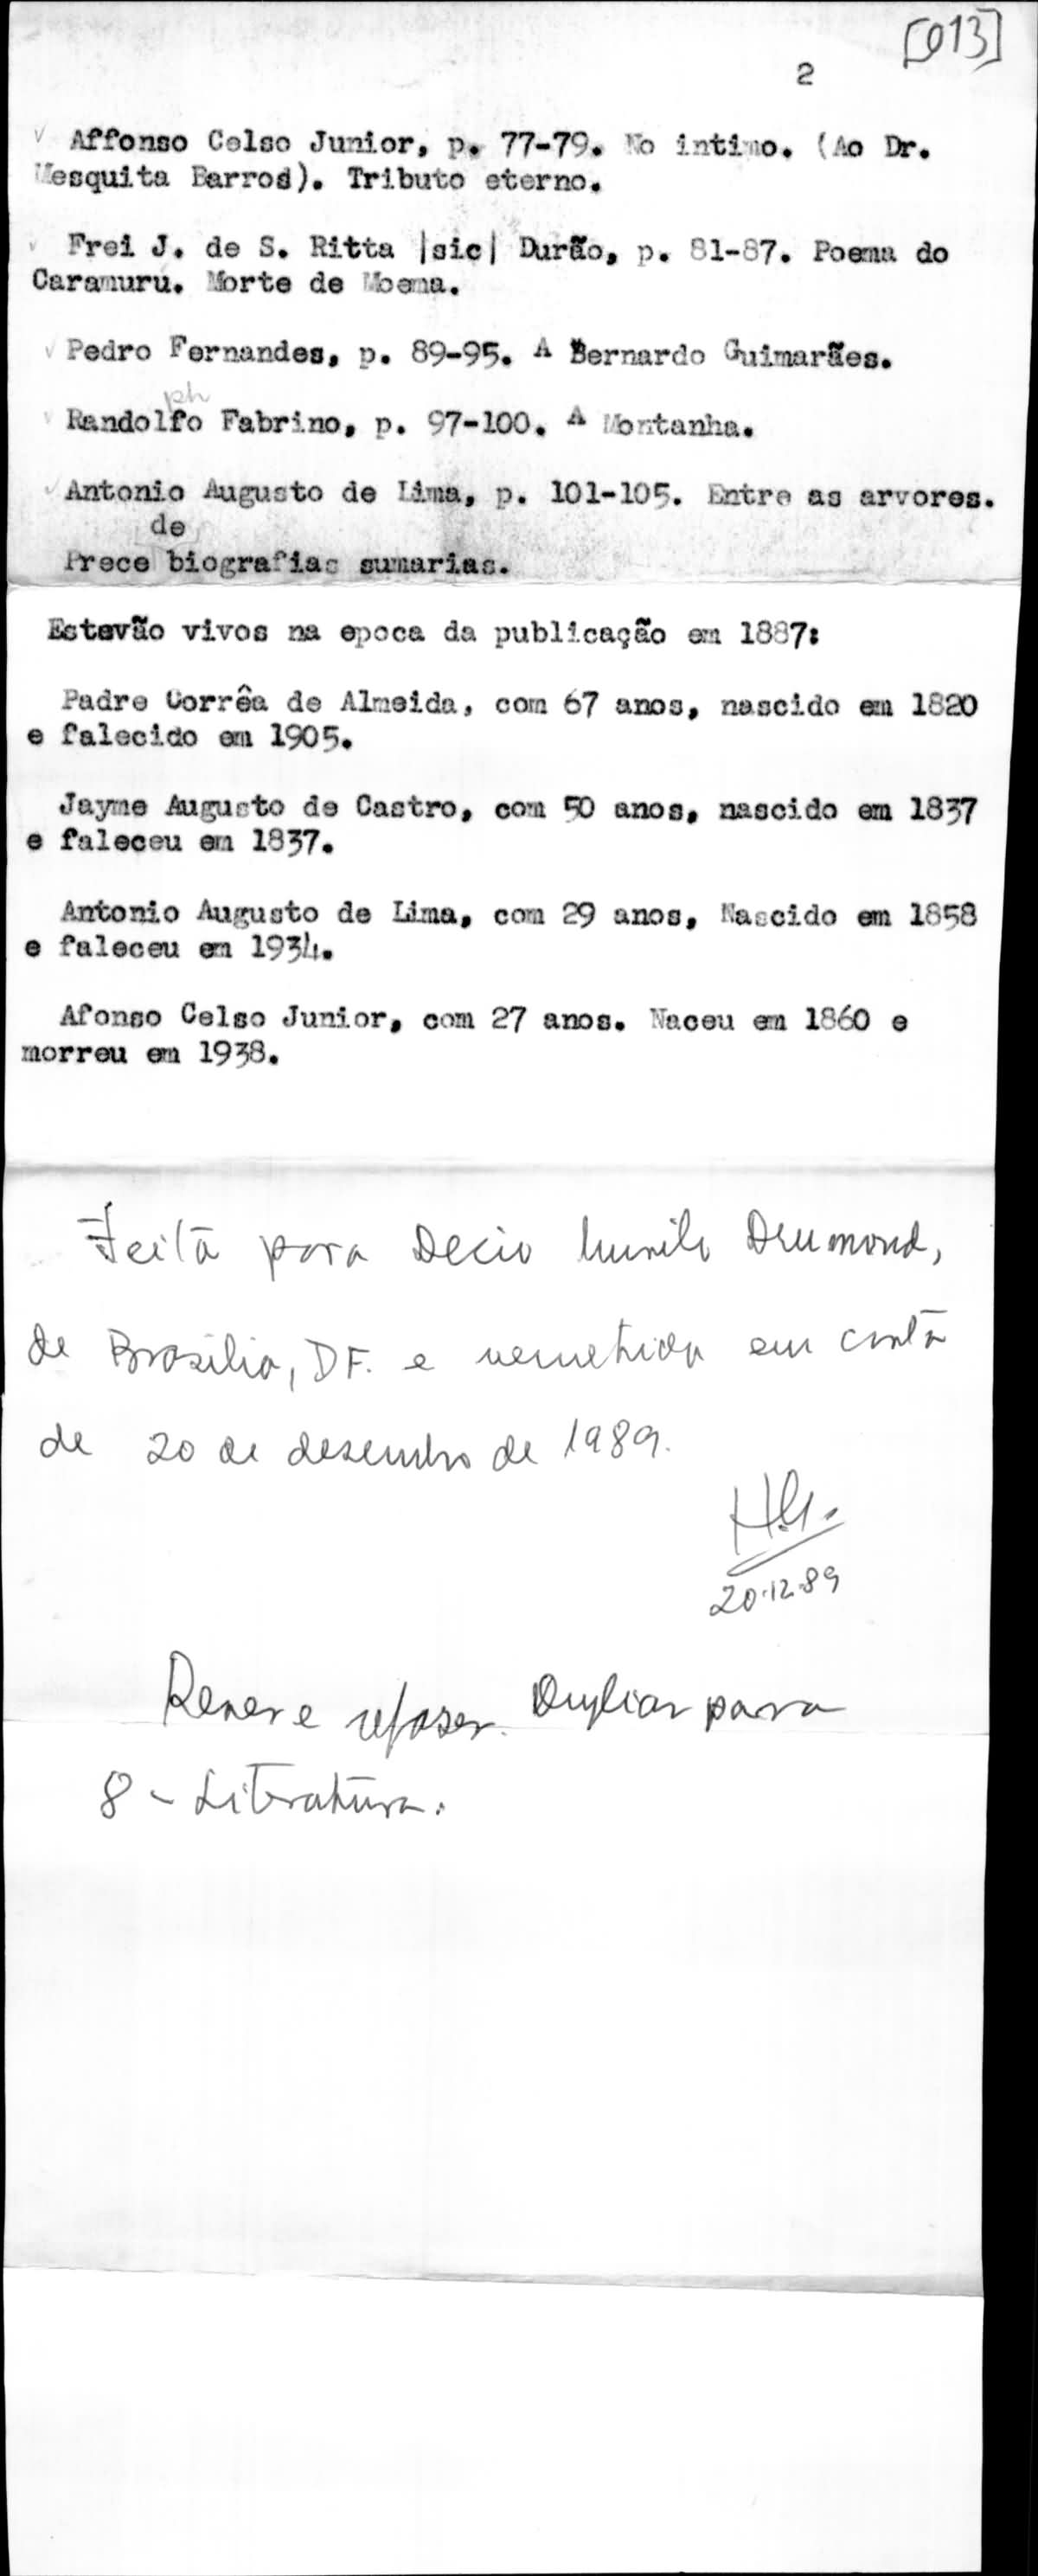 [013]
2
√ Affonso Celso Junior, p. 77-79. No intimo. (Ao Dr.
Mesquita Barros). Tributo eterno.
√ Frei J. de S. Ritta |sic| Durão, p. 81-87. Poema do
Caramuru. Morte de Moema.
√ Pedro Fernandes, p. 89-95. A Bernardo Guimarães.
ph
√ Randolfo Fabrino, p. 97-100. A Montanha.
√ Antonio Augusto de Lima, p. 101-105. Entre as arvores.
de
Prece biografias sumarias.
Estavão vivos na epoca da publicação em 1887:
Padre Corrêa de Almeida, com 67 anos, nascido em 1820
e falecido em 1905.
Jayme Augusto de Castro, com 50 anos, nascido em 1837
e faleceu em 1837.
Antonio Augusto de Lima, com 29 anos, Nascido em 1858
e faleceu em 1934.
Afonso Celso Junior, com 27 anos. Naceu em 1860 e
morreu em 1938.
Feita para Decio Murilo Drumond,
de Brasilia, DF. e remetida em carta
de 20 de desembro de 1989.
H.G.
20.12.89
Rever e refaser. para
8 - Literatura.